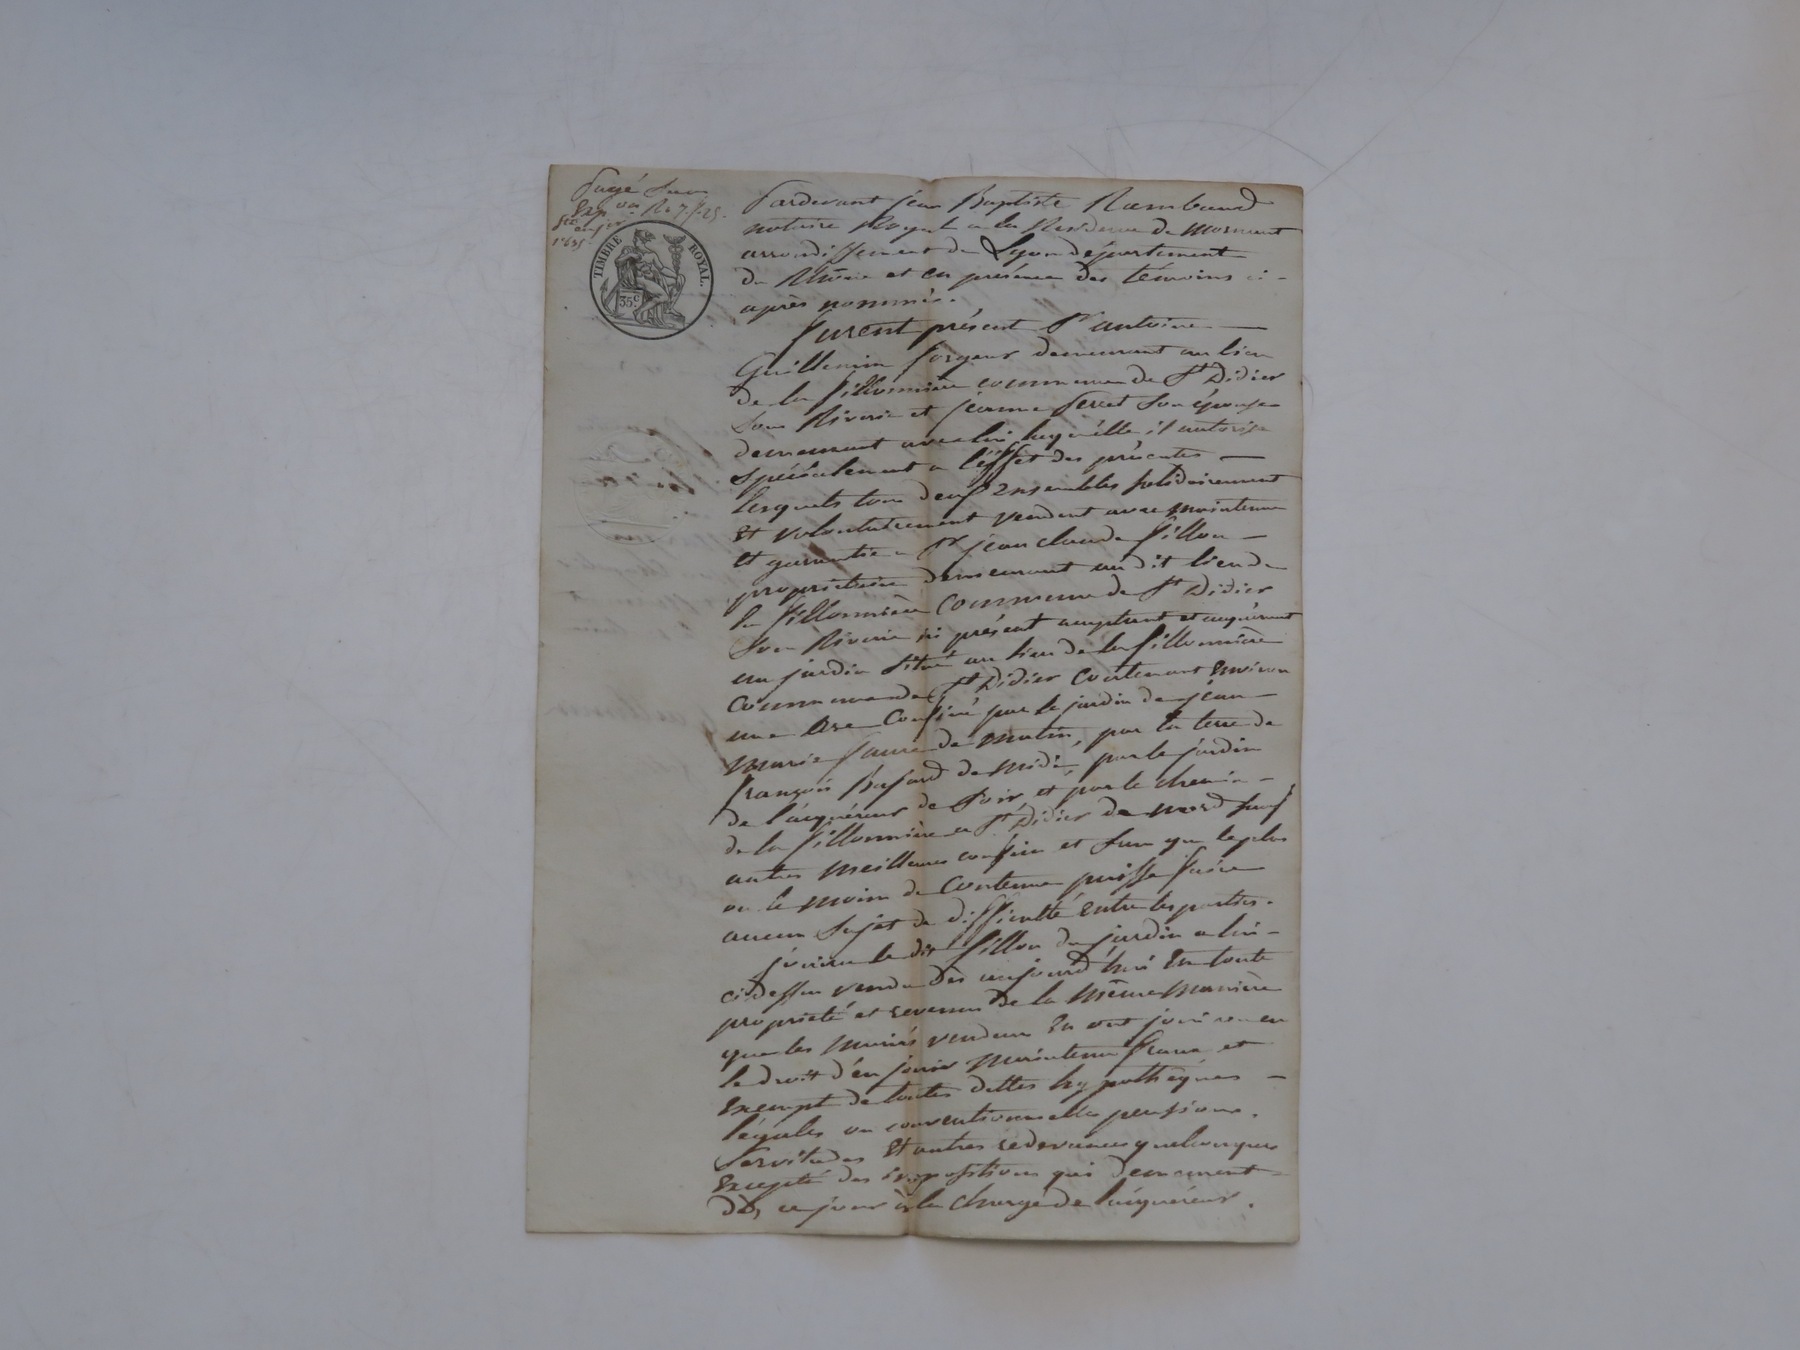 TIMBRE ROYAL.
35c
Pardevant jean Baptiste Rambaud
notaire Royal a la Residence de Mornant
arrondissement de Lyon département
du Rhône et en présence des témoins ci-
après nommés.
furent présent Sr antoine
Guillermin forgeur demeurant au lieu
de la fillonnière commune de St Didier
Sous Riverie et jeanne Seret Son épouse
demeurant avec lui laquélle il autorise
Spécialement a l'éffet des présentes
lesquels tous deux Ensembles solidairement
Et volontairement vendent avec maintenue
Et garantie a Sr jean claude fillon
propriétaire demeurant au dit lieu de
la fillonnière Commune de St Didier
Sous Riverie ici présent acceptant et acquérant
un jardin Situé au lieu de la fillonnière
Commune de St Didier Contenant Environ
une are Confiné par le jardin de jean
Marie faure de matin, par la terre de
françois Basard de midi, par le jardin
de l'acquéreur de Soir et par le chemin
de la fillonnière a St Didier de nord Sauf
autres meilleurs confins et Sans que le plus
ou le moins de Contenue puisse faire
aucun Sujet de difficulté Entre les parties.
jouira le dit fillon du jardin a lui
ci dessus vendu Dès aujourd'hui En toute
propriété et revenus de la Même Manière
que les Mariés vendeurs En ont joui ou eu
le droit d'en jouir Maintenu franc et
Exempt de toutes dettes hypothèques
légales ou conventionnelles pensions.
Servitudes Et autres redevances quelconques
Excepté des impositions qui demeurent
dès ce jour à la charge de l'acquéreur.